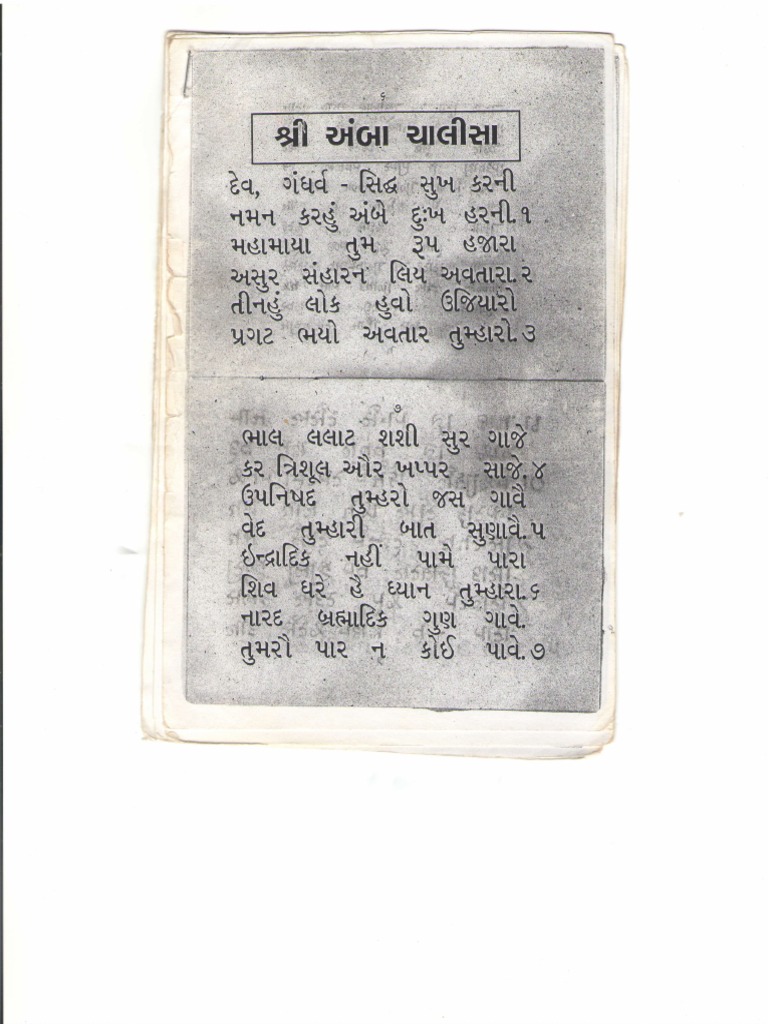 ૬
શ્રી અંબા ચાલીસા
દેવ, ગંધર્વ - સિદ્ધ સુખ કરની
નમન કરહું અંબે દુઃખ હરની.૧
મહામાયા તુમ રૂપ હજારા
અસુર સંહારન લિય અવતારા.૨
તીનહું લોક હુવો ઉજિયારો
પ્રગટ ભયો અવતાર તુમ્હારો.૩
૭
ભાલ લલાટ શશી સુર ગાજે
કર ત્રિશૂલ ઔર ખપ્પર સાજે.૪
ઉપનિષદ તુમ્હરો જસ ગાવૈ
વેદ તુમ્હારી બાત સુણાવૈ.૫
ઇન્દ્રાદિક નહીં પામે પારા
શિવ ધરે હૈ ધ્યાન તુમ્હારા.૬
નારદ બ્રહ્માદિક ગુણ ગાવે.
તુમરૌ પાર ન કોઈ પાવે.૭